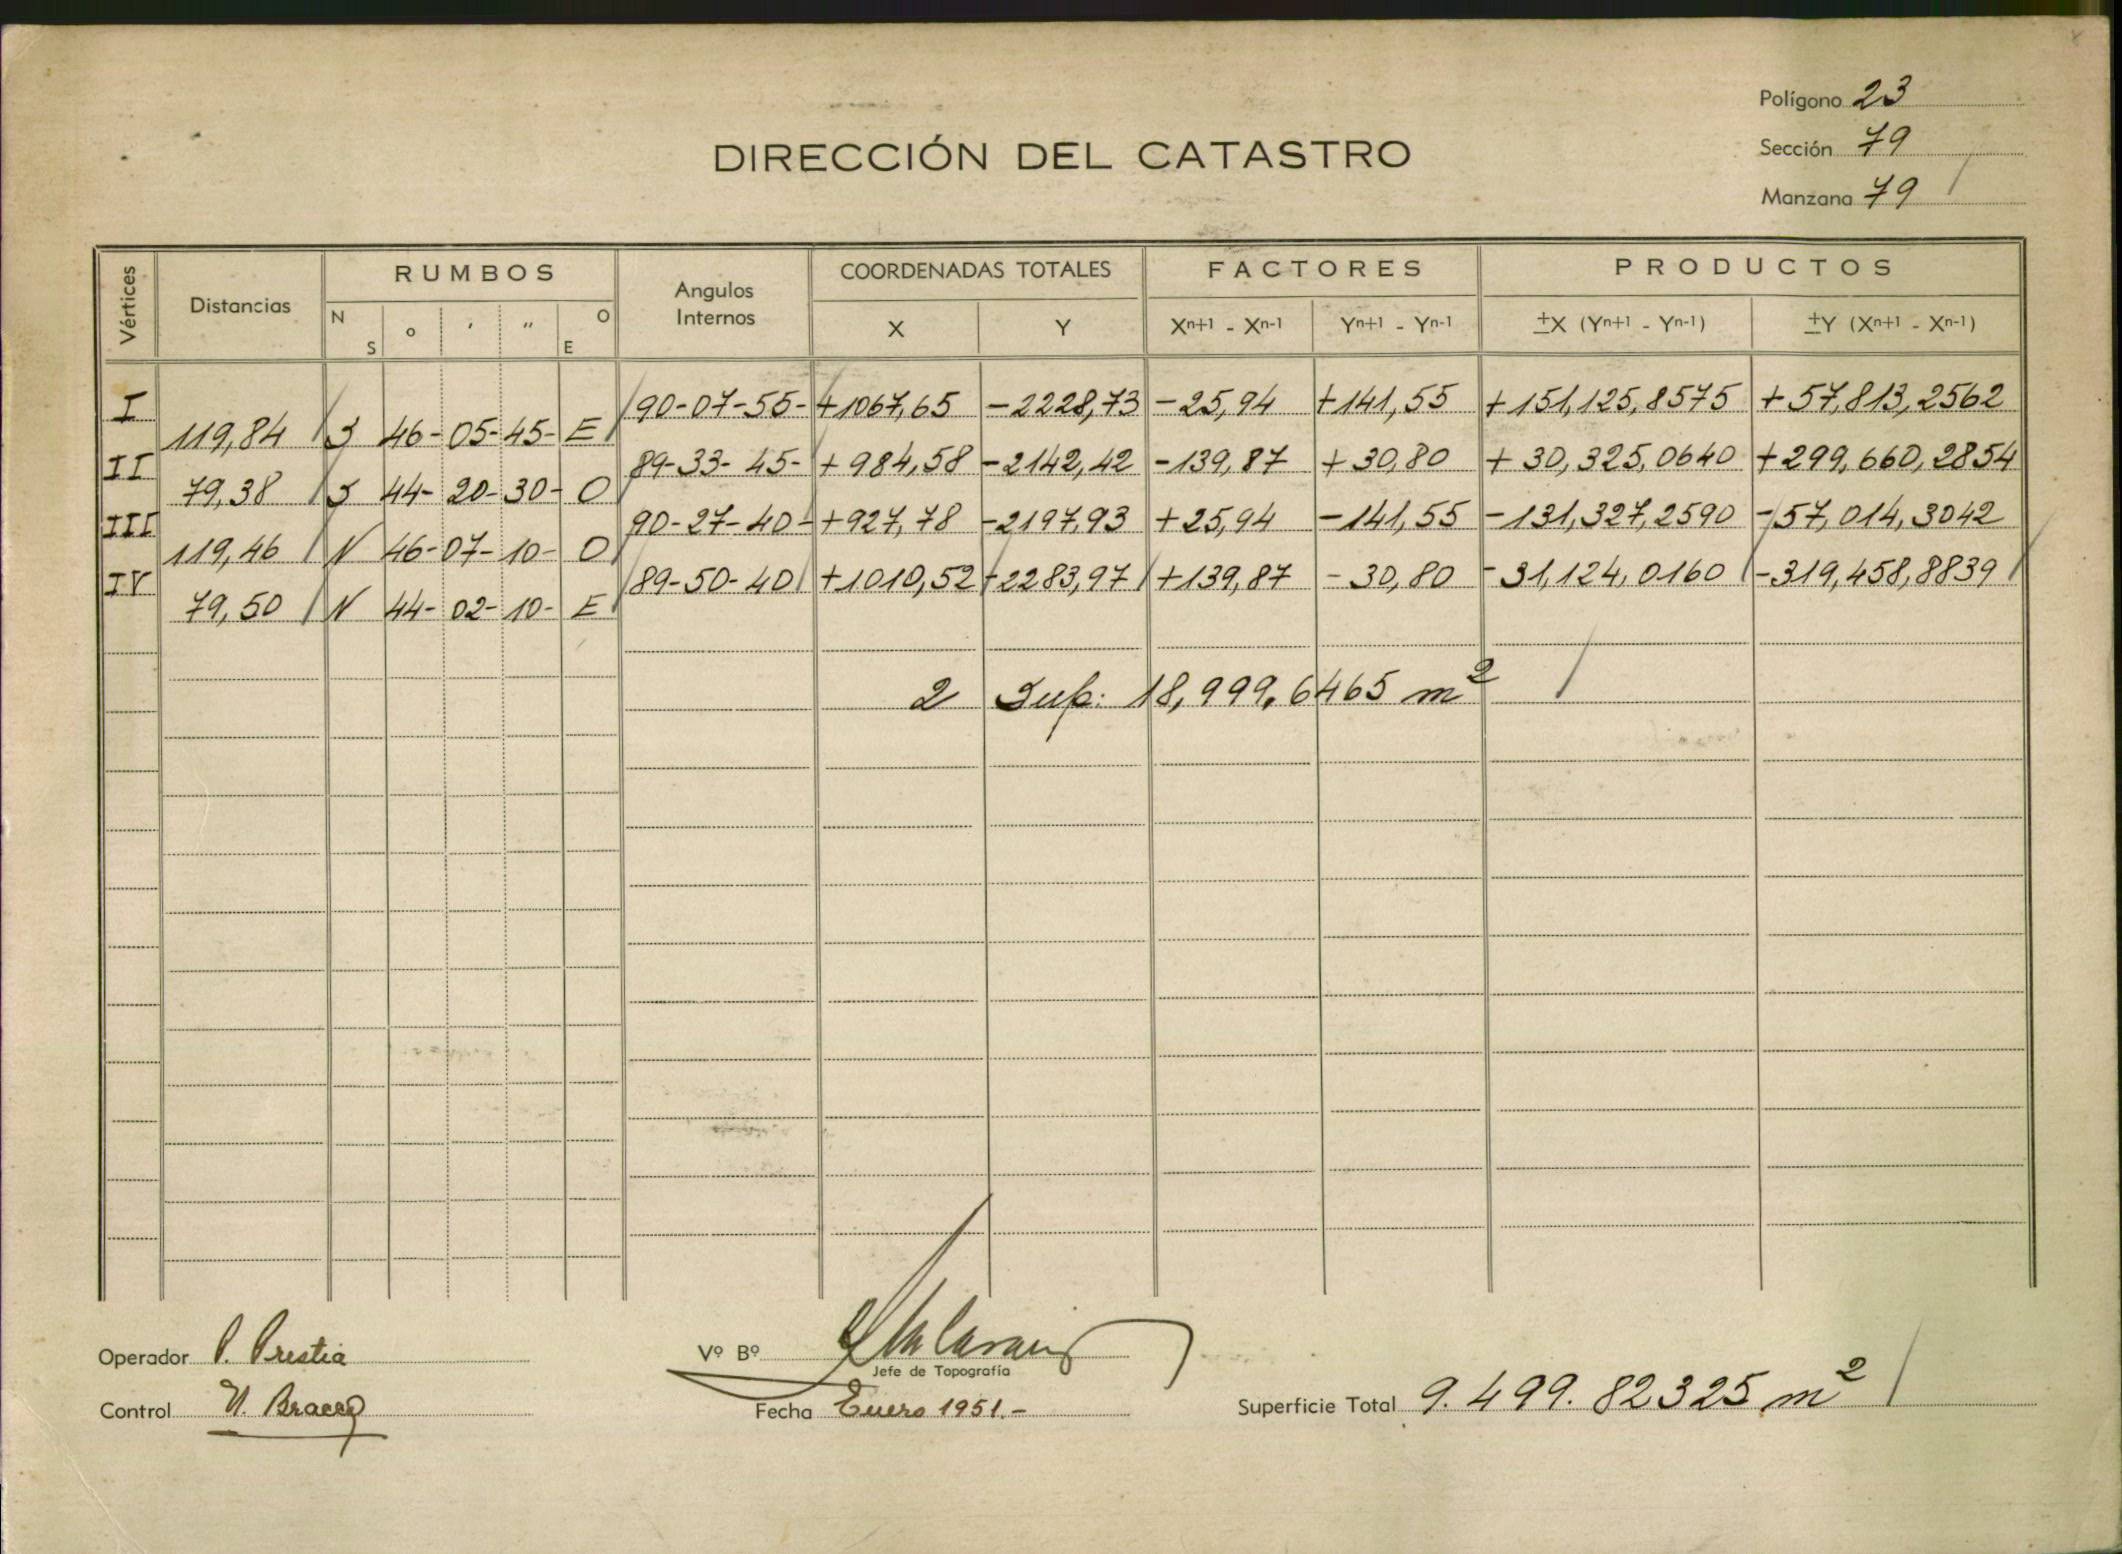 Polígono 23
DIRECCIÓN DEL CATASTRO
Sección 79
Manzana 79
Vértices Distancias RUMBOS Angulos Internos COORDENADAS TOTALES FACTORES PRODUCTOS
N S o ' " O E X Y Xn+1 - Xn-1 Yn+1 - Yn-1 ±X (Yn+1 - Yn-1) ±Y (Xn+1 - Xn-1)
I 90-07-55- +1067,65 -2228,73 -25,94 +141,55 +151,125,8575 +57,813,2562
119,84 S 46- 05- 45- E
II 89-33-45- +984,58 -2142,42 -139,87 +30,80 +30,325,0640 +299,660,2854
79,38 S 44- 20- 30- O
III 90-27-40- +927,78 -2197,93 +25,94 -141,55 -131,327,2590 -57,014,3042
119,46 N 46- 07- 10- O
IV 89-50-40 +1010,52 -2283,97 +139,87 -30,80 -31,124,0160 -319,458,8839
79,50 N 44- 02- 10- E
2 Sup: 18,999,6465 m2
Operador P. Prestia
Vº Bº
Jefe de Topografía
Control
Fecha Enero 1951.-
Superficie Total 9.499.82325 m2